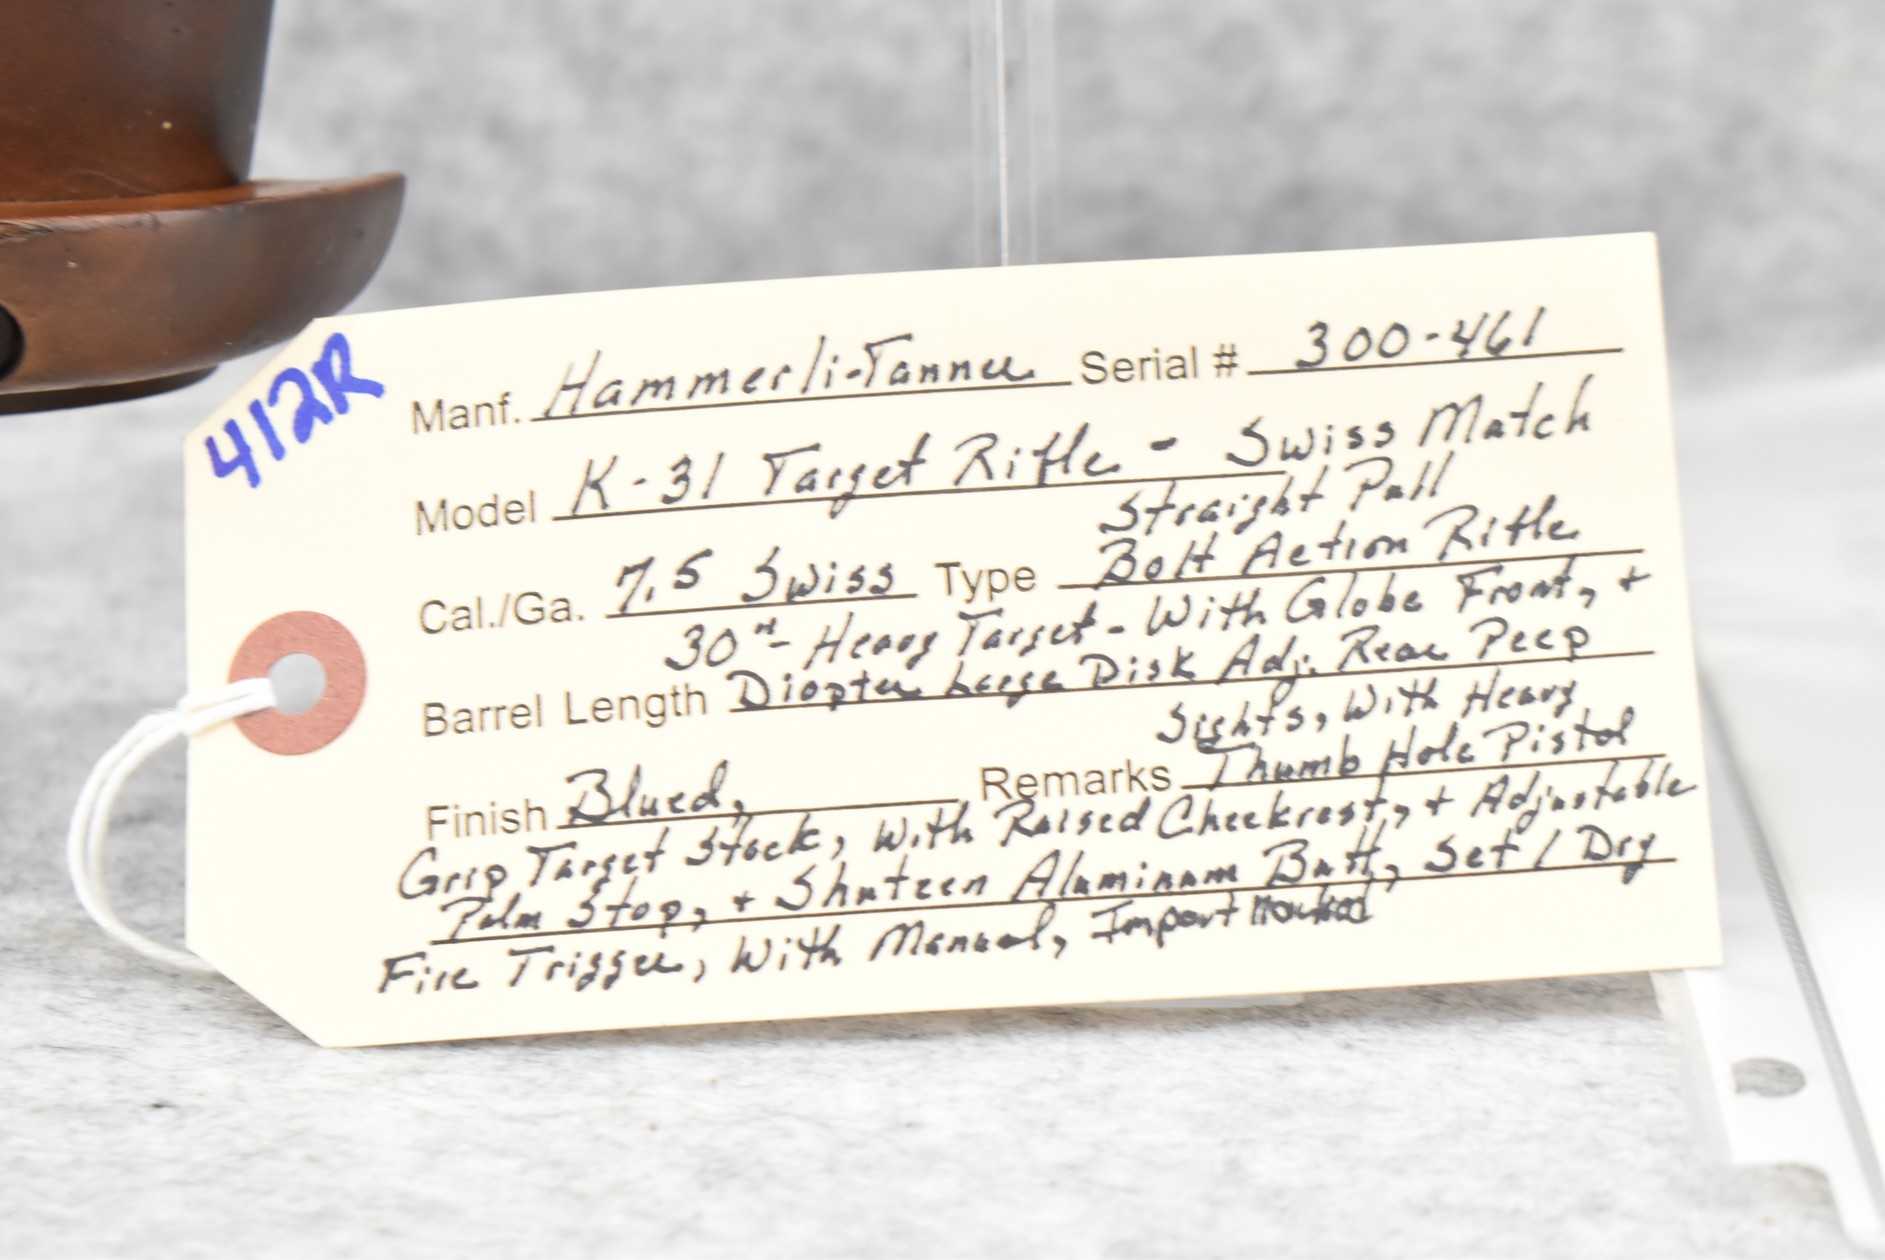 412R
Manf. Hammerli-Tanner Serial # 300-461
Model K-31 Target Rifle - Swiss Match
Straight Pull
Cal./Ga. 7.5 Swiss Type Bolt Action Rifle
30"- Heavy Target - With Globe Front, +
Barrel Length Diopter Large Disk Adj. Rear Peep
Sights, With Heavy
Finish Blued, Remarks Thumb Hole Pistol
Grip Target Stock, With Raised Cheekrest, + Adjustable
Palm Stop, + Shutzen Aluminum Butt, Set / Dry
Fire Trigger, With Manual, Import Marked